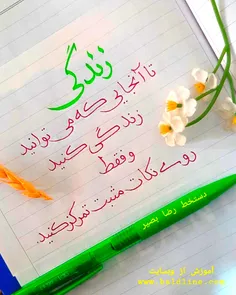 زندگی
تا آنجایی که می توانید
زندگی کنید
و فقط
روی نکات مثبت تمرکز کنید.
دستخط رضا بصیر
آموزش از وبسایت